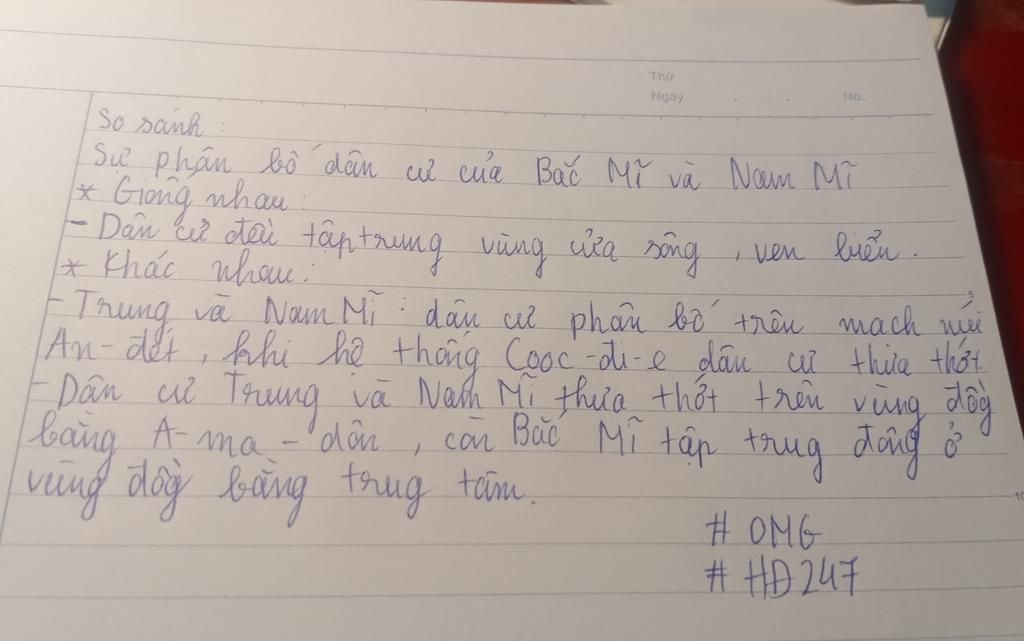 Thứ
Ngày . . No.
So sánh :
Sự phân bố dân cư của Bắc Mĩ và Nam Mĩ
* Giống nhau :
- Dân cư đều tập trung vùng cửa sông , ven biển .
* Khác nhau :
- Trung và Nam Mĩ : dân cư phân bố trên mach núi
An-đét , khi hệ thống Cooc-đi-e dân cư thưa thớt.
- Dân cư Trung và Nam Mĩ thưa thớt trên vùng đồg
bằng A-ma-dôn , còn Bắc Mĩ tập trug đông ở
vùng đồg bằng trug tâm.
# OMG
# HĐ247
5
10